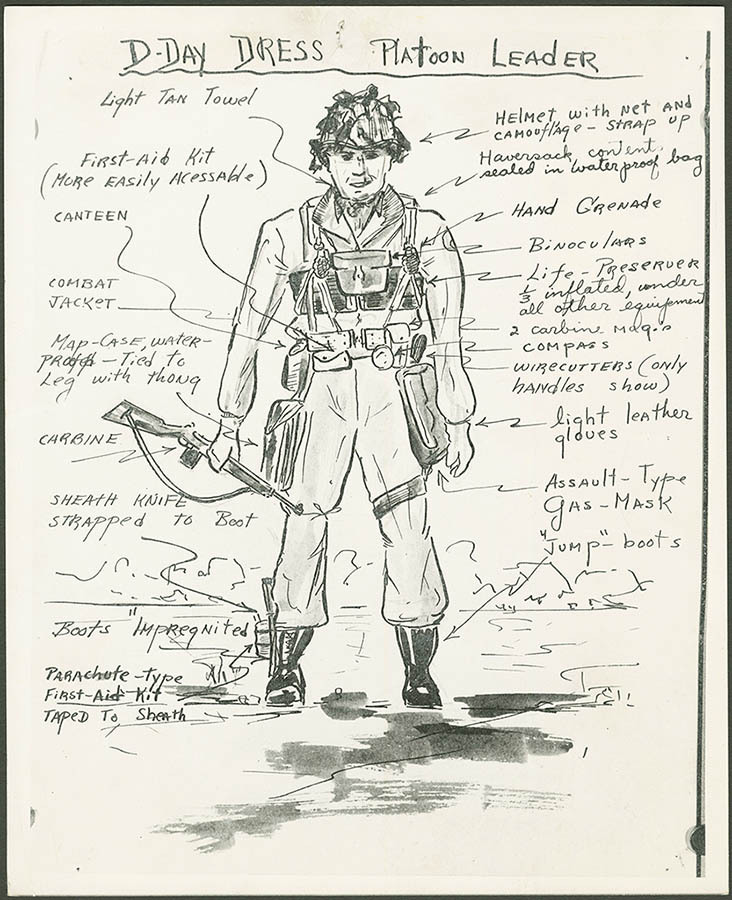 D-DAY DRESS PLATOON LEADER
Light TAN TOWEL
First-Aid Kit
(MORE EASILY ACESSABLE)
CANTEEN
COMBAT
JACKET
MAP-CASE, WATER-
PROOF - Tied to
Leg with thong
CARBINE
SHEATH KNIFE
STRAPPED to Boot
Boots "IMPREGNITED"
PARACHUTE-TYPE
FIRST-AID KIT
TAPED TO Sheath
HELMET with NET AND
CAMOUFLAGE - STRAP UP
Haversack, contents
sealed in waterproof bag
HAND GRENADE
BINOCULARS
Life-Preserver
1/3 inflated, under
all other equipment
2 carbine mag.s
COMPASS
WIRECUTTERS (only
HANDLES SHOW)
light leather
gloves
ASSAULT-TYPE
GAS-MASK
"JUMP"-boots